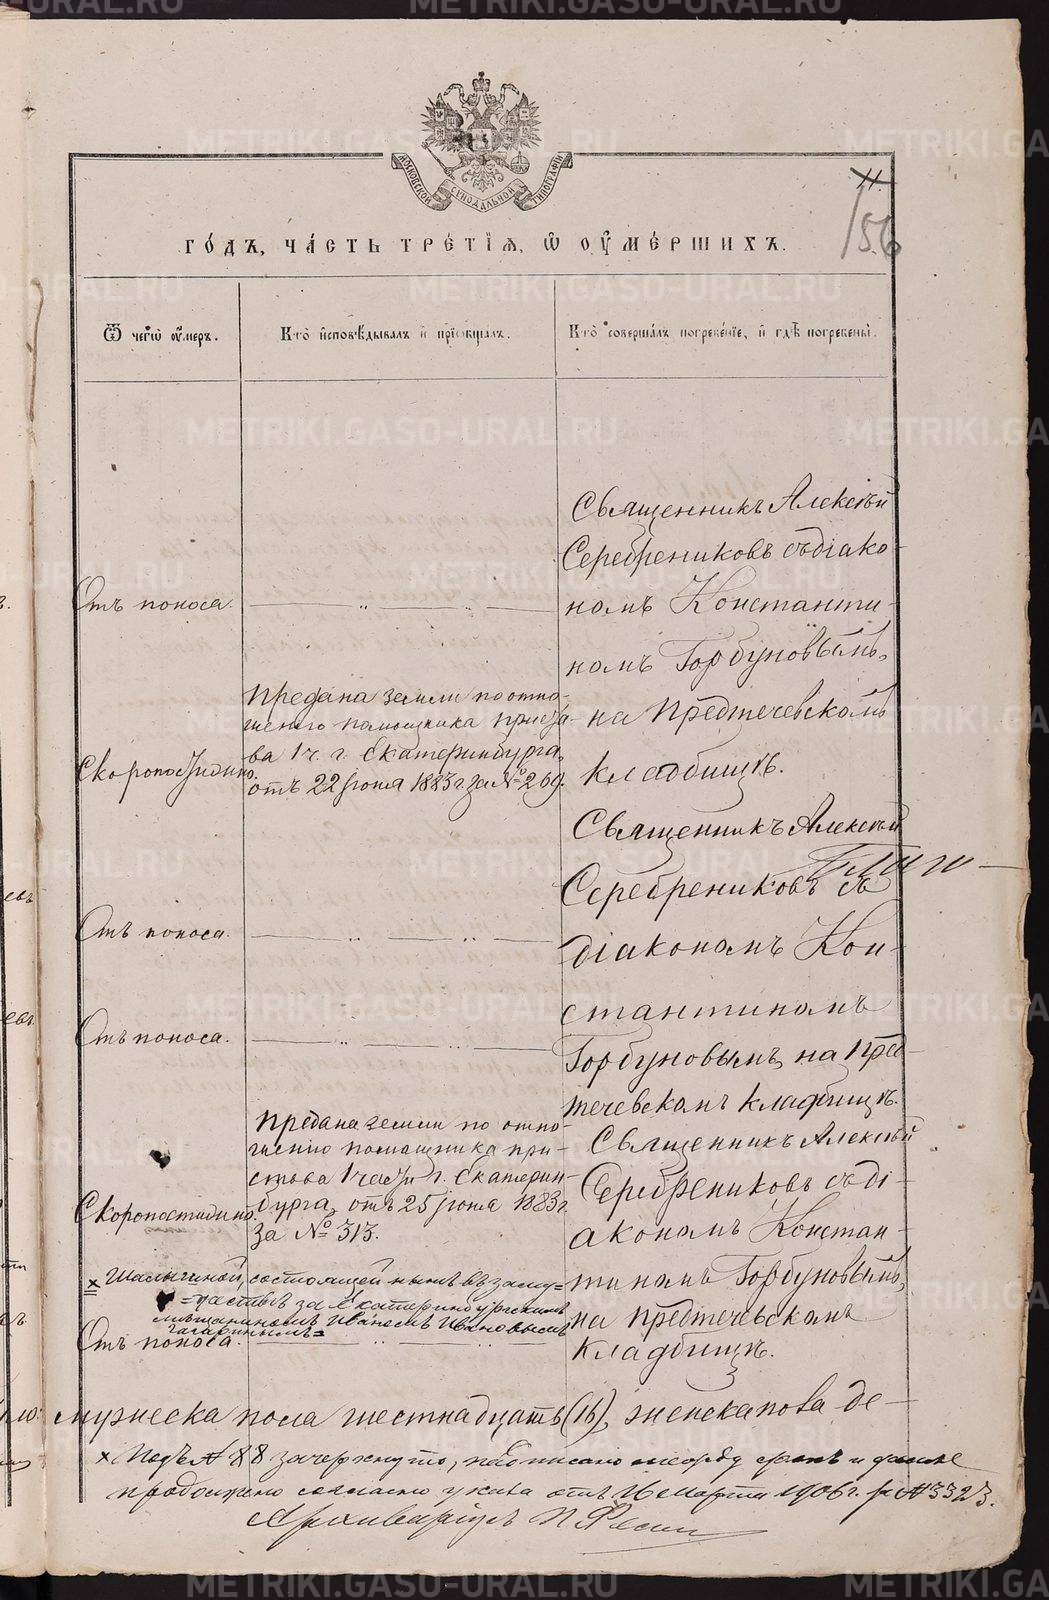 МОСКОВСКОЙ СѴНОДАЛЬНОЙ ТИПОГРАФІИ
11
156
ГО́ДЪ, ЧА́СТЬ ТРЕ́ТІѦ, Ѡ҆ ОУ҆МЕ́РШИХЪ.
Ѿ чегѡ̀ оу҆меръ.
Кто̀ и҆сповѣ́дывалъ и҆ прїѡбща́лъ.
Кто̀ соверша́лъ погребе́нїе, и҆ гдѣ̀ погребены̀.
Отъ поноса.
Священникъ Алексѣй
Серебрениковъ съ діако-
номъ Константи-
номъ Горбуновымъ,
на Предтечевскомъ
кладбищѣ.
Скоропостижно.
Предана земли по отно-
шенію помощника приста-
ва 1 ч. г. Екатеринбурга,
отъ 22 Іюня 1883 г. за № 269.
Отъ поноса.
Священникъ Алексѣй
Серебрениковъ съ
діакономъ Кон-
стантиномъ
Горбуновымъ, на Пред-
течевскомъ кладбищѣ.
Отъ поноса.
Скоропостижно.
Предана земли по отно-
шенію помощника при-
става 1 части г. Екатерин-
бурга, отъ 25 Іюня 1883 г.
за № 313.
Священникъ Алексѣй
Серебрениковъ съ ді-
акономъ Констан-
тиномъ Горбуновымъ,
на Предтечевскомъ
кладбищѣ.
х Шалыгиной, состоящей нынѣ въ заму=
=жествѣ за Екатеринбургскимъ
мѣщаниномъ Иваномъ Ивановымъ
Отъ поноса.
мужеска пола шестнадцать (16), женска пола де-
х Подъ № 88 зачеркнуто, надписано между строкъ и далѣе
продолжено согласно указа отъ 16 марта 1906 г. за № 3323.
Архиваріусъ
METRIKI.GASO-URAL.RU